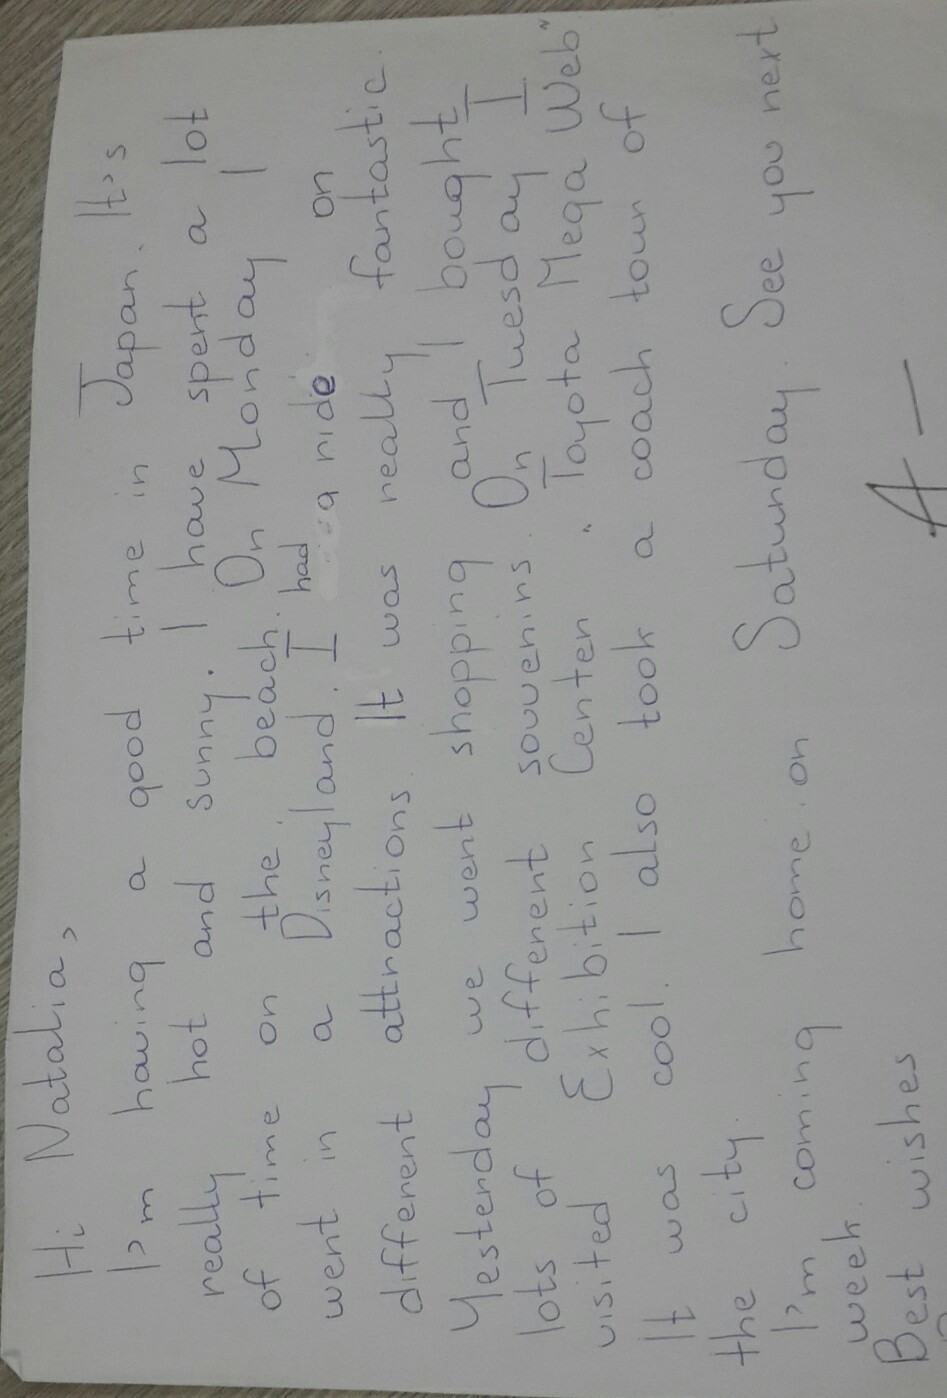 Hi Natalia,
I'm having a good time in Japan. It's
really hot and sunny. I have spent a lot
of time on the beach. On Monday I
went in a Disneyland. I had a ride on
different attractions. It was really fantastic.
Yesterday we went shopping and I bought
lots of different souvenirs. On Tuesday I
visited Exhibition Center "Toyota Mega Web"
It was cool. I also took a coach tour of
the city.
I'm coming home on Saturday. See you next
week.
Best wishes
A-